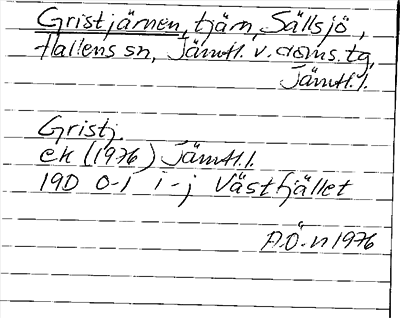 Gristjärnen, tjärn, Sällsjö,
Hallens sn, Jämtl. v. doms. tg,
Jämtl. l.
Gristj.
ek (1976) Jämtl. l.
19D 0-1 i-j Västfjället
A.Ö-n 1976